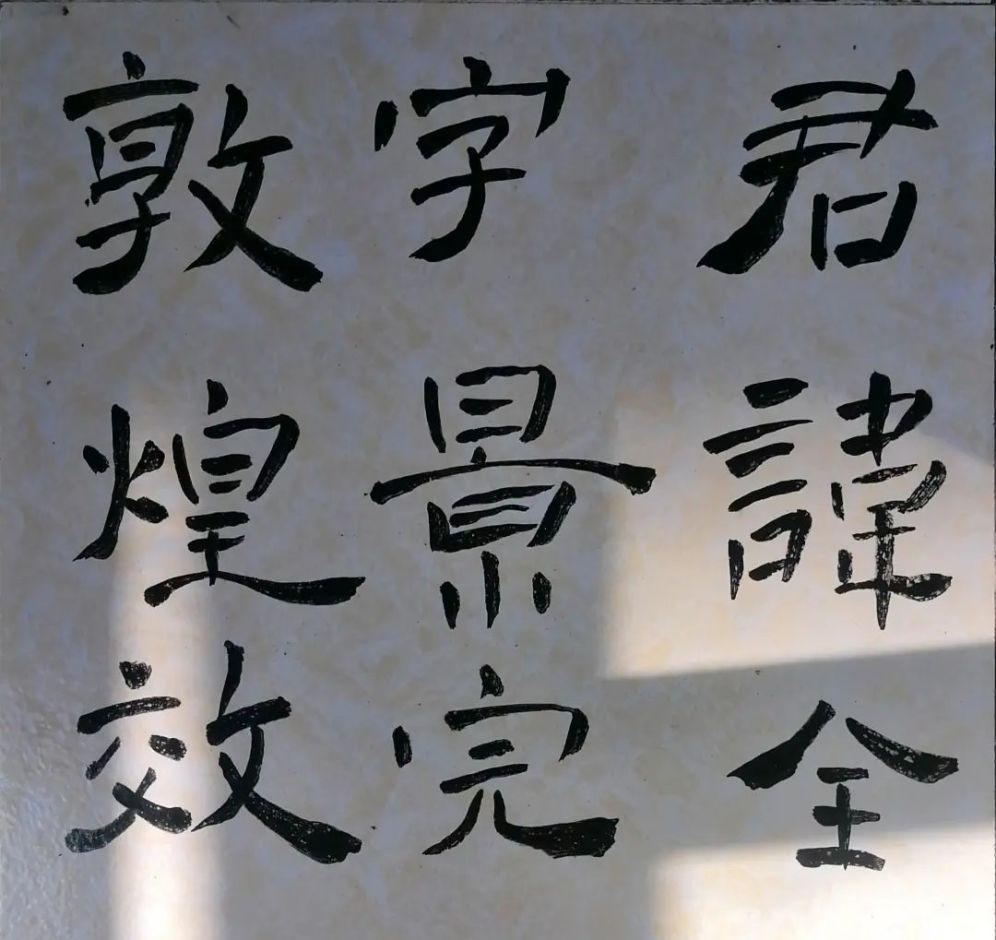 君諱全
字景完
敦煌效